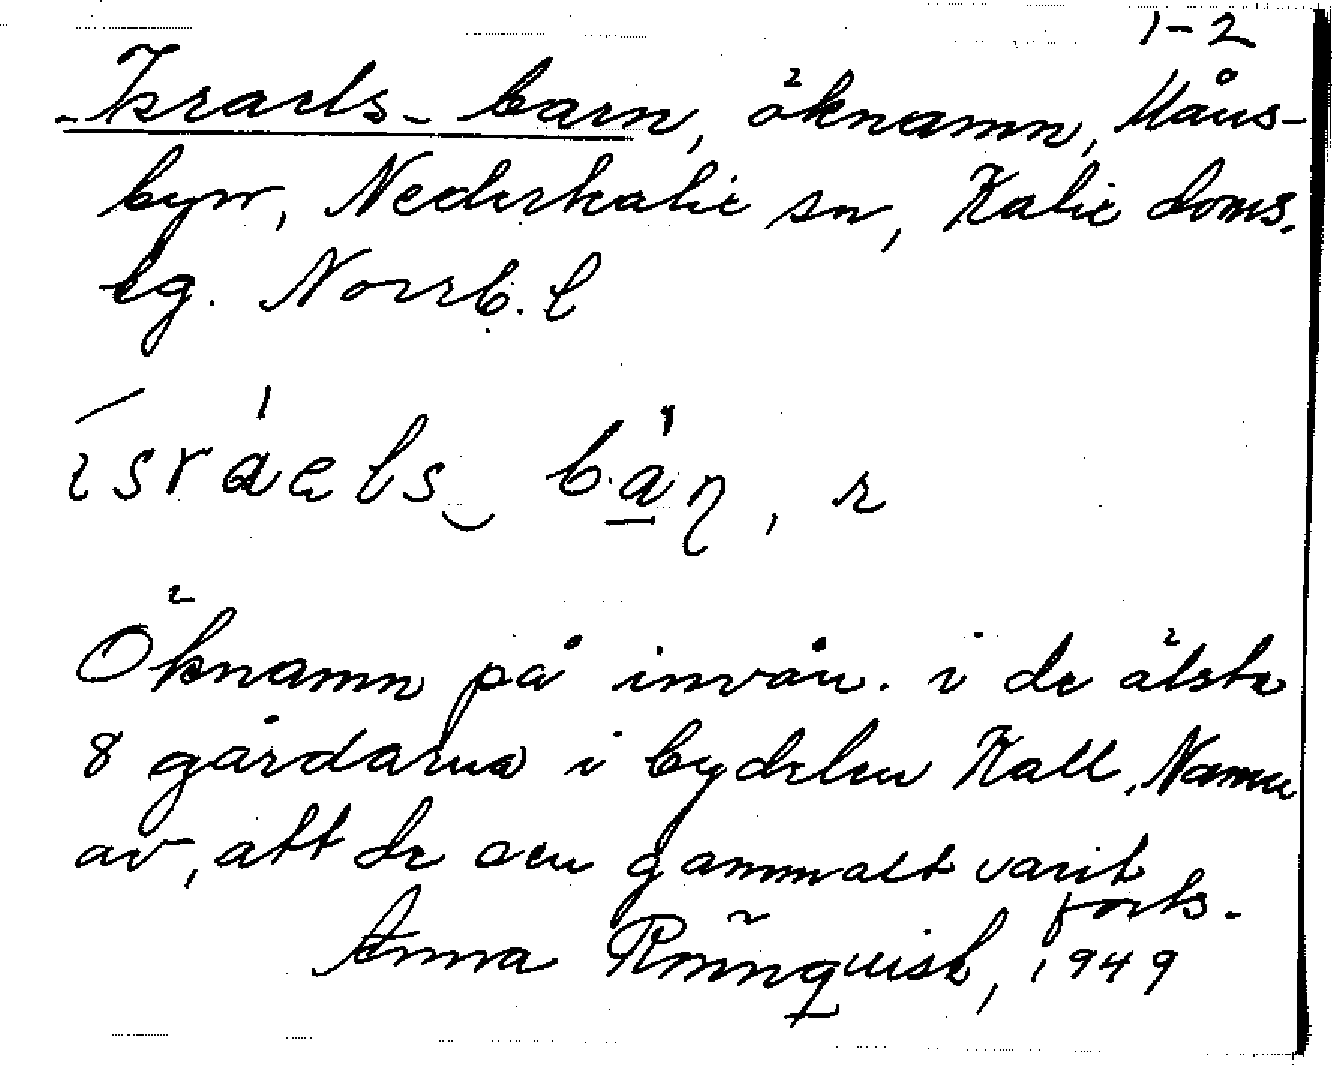 1-2
-Israels-barn, öknamn, Måns-
byn, Nederkalix sn, Kalix doms.
tg. Norrb. l
israels bàn, r
Öknamn på invån. i de älsta
8 gårdarna i bydelen Kall, Namn
av, att de av gammalt varit
forts.
Anna Rönnquist, 1949